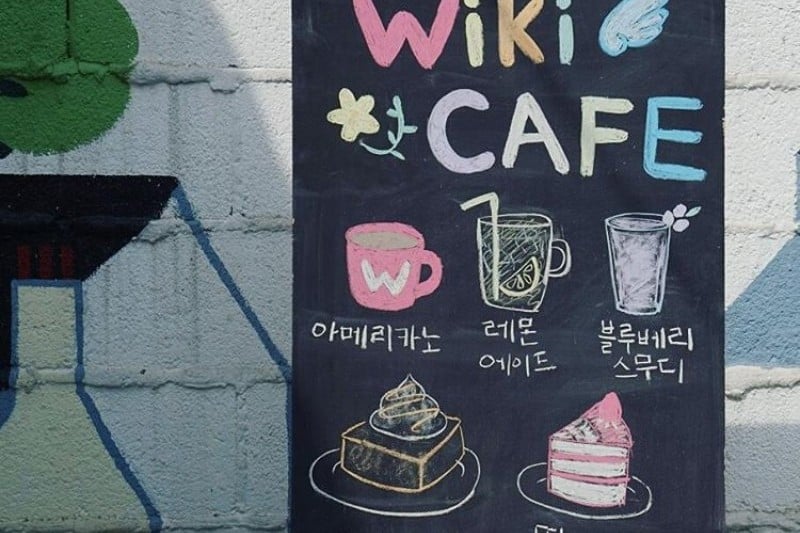 Wiki
CAFE
W
아메리카노
레몬
에이드
블루베리
스무디